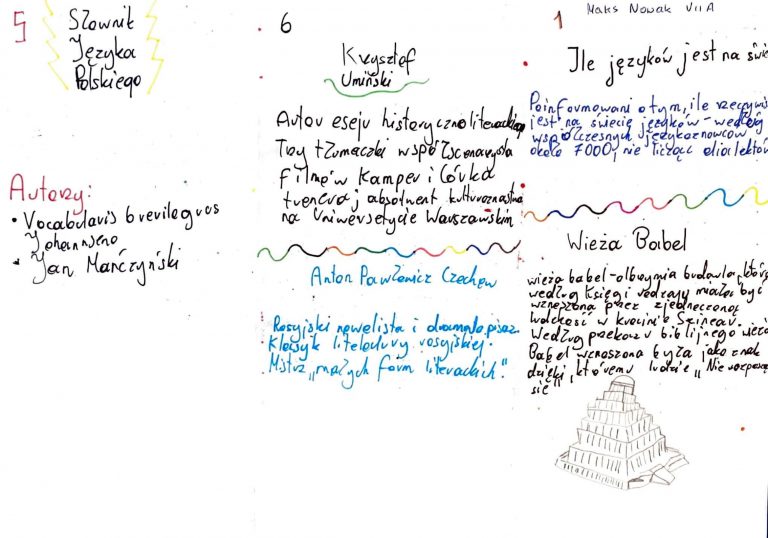 5
Słownik
Języka
Polskiego
Autorzy:
• Vocabularis breviloquus
• Jan Mańczyński
6
Krzysztof
Umiński
Autor eseju historycznoliterackiego
Trzy tłumaczki współscenarzysta
filmów Kamper i Córka
trenera j absolwent kulturoznastwa
na Uniwersytecie Warszawskim
Anton Pawłowicz Czechow
Rosyjski nowelista i dramatopisarz.
Klasyk literatury rosyjskiej.
Mistrz „małych form literackich".
1
Maks Nowak VII A
Ile języków jest na świe
Poinformowani o tym, ile rzeczywiś
jest na świecie języków - według
współczesnych językoznawców
około 7000, nie licząc dialektów
Wieża Babel
wieża babel - olbrzymia budowla, któr
według Księgi rodzaju miała być
wzniesiona przez zjednoczoną
ludzkość w krainie Szinear.
Według przekazu biblijnego wieża
Babel wznoszona była jako znak
dzięki któremu ludzie „Nie rozprosz
się"